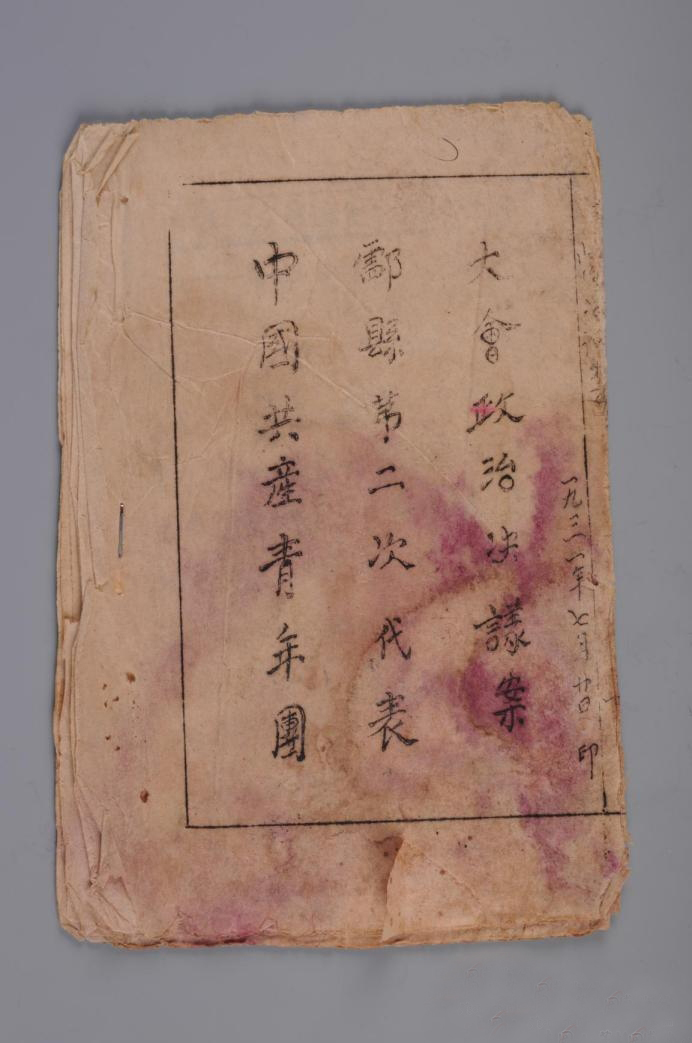 中國共產青年團
酃縣苐二次代表
大會政治决議案
一九三一年七月廿日 印